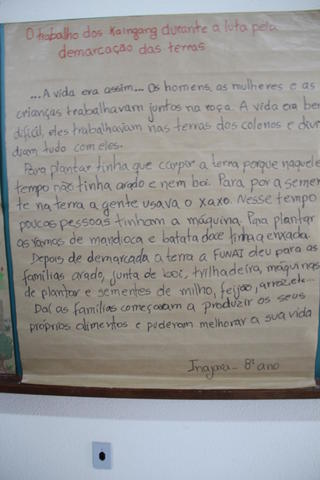 O trabalho dos Kaingang durante a luta pela
demarcação das terras
...A vida era assim... Os homens, as mulheres e as
crianças trabalhavam juntos na roça. A vida era bem
difícil, eles trabalhavam nas terras dos colonos e divi
diam tudo com eles.
Para plantar tinha que carpor a terra porque naquele
tempo não tinha arado e nem boi. Para por a semen
te na terra a gente usava o xaxo. Nesse tempo
poucas pessoas tinham a máquina. Para plantar
as ramas de mandioca e batata doce tinha a enxada.
Depois de demarcada a terra a FUNAI deu para as
famílias arado, junta de boi, trilhadeira, máquinas
de plantar e sementes de milho, feijão, arroz, etc...
Daí as famílias começaram a produzir os seus
próprios alimentos e puderam melhorar a sua vida
Inajara - 8º ano